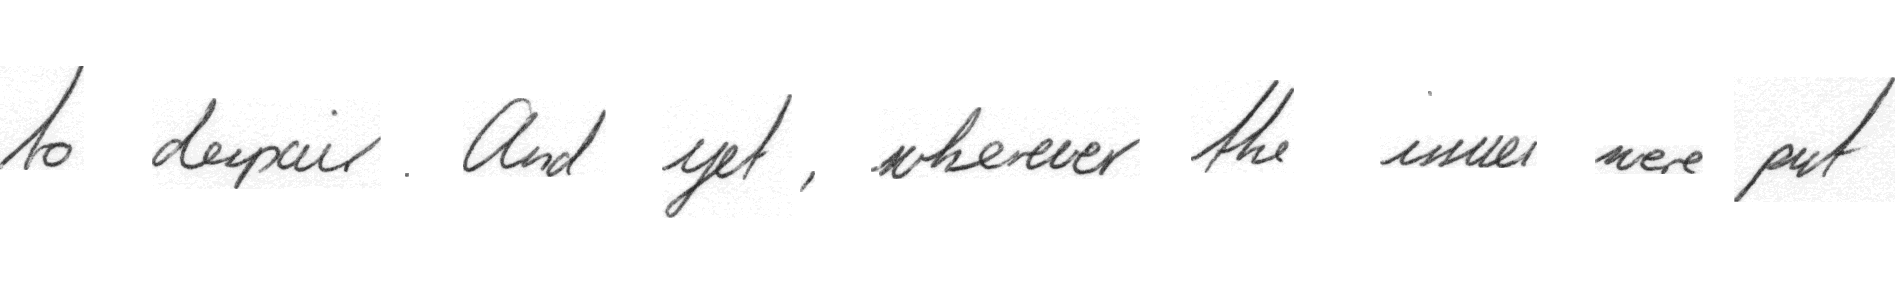 to despair. And yet, wherever the issues were put